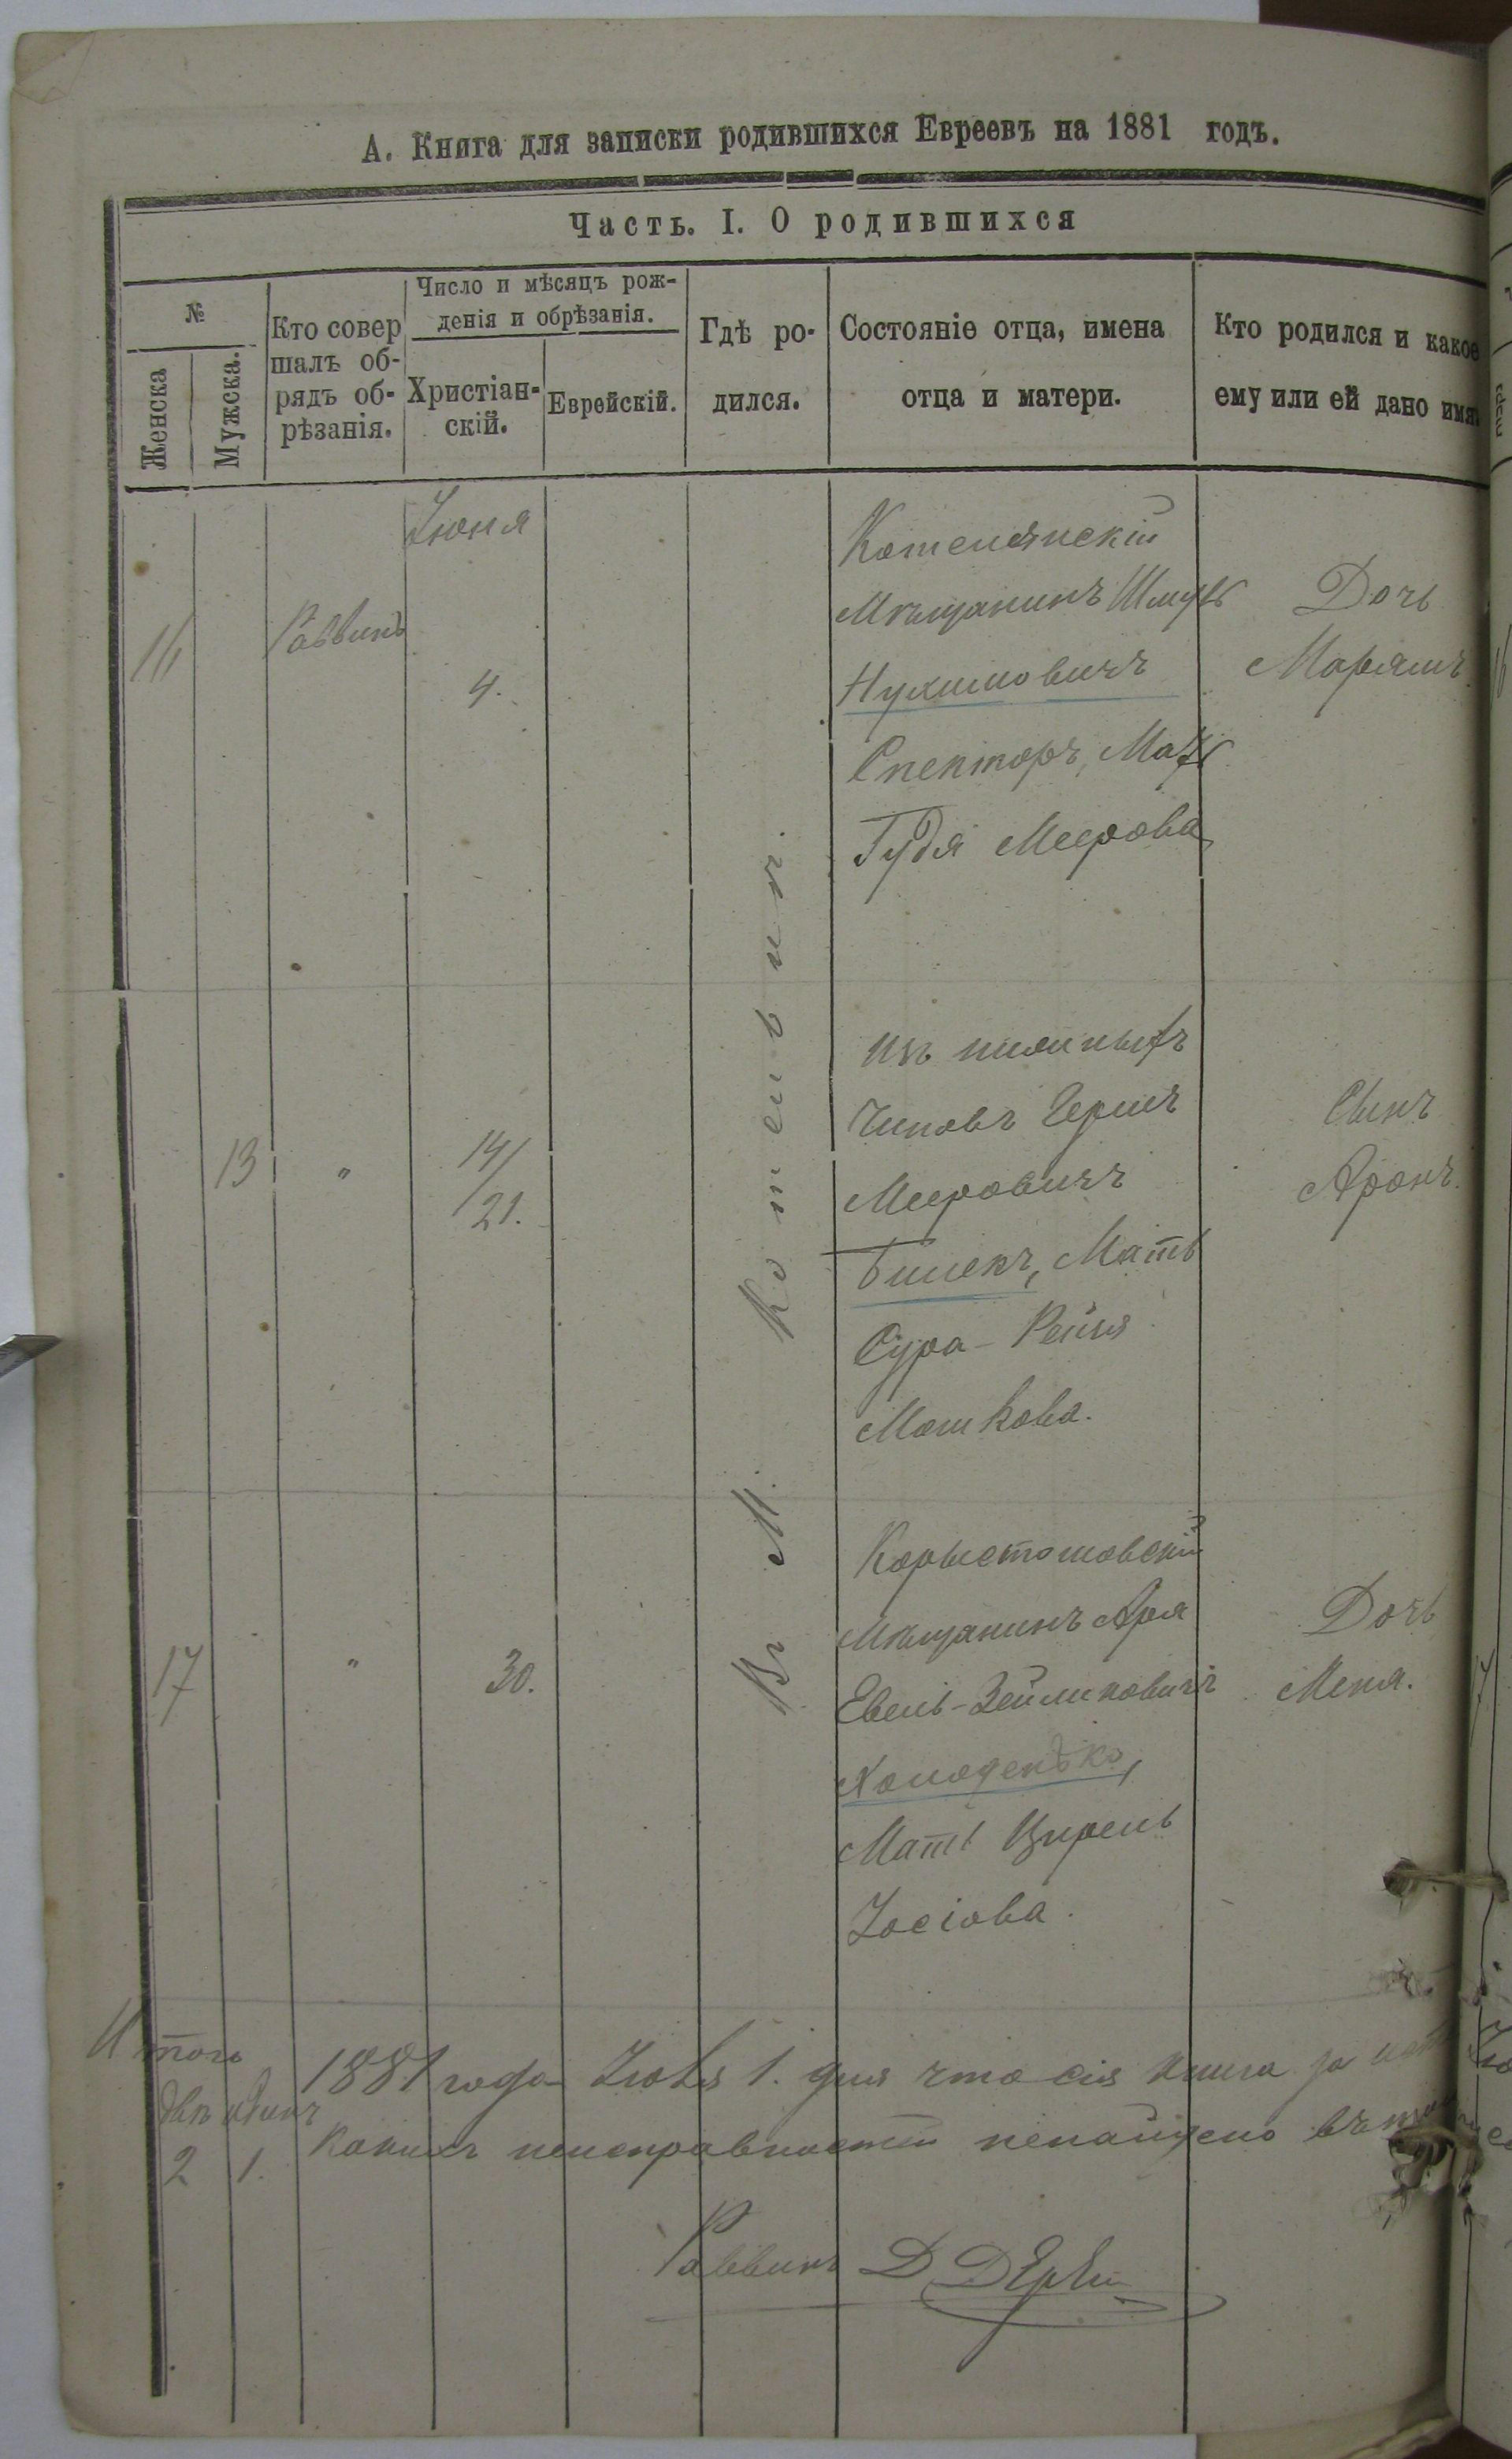 А. Книга для записки родившихся Евреевъ на 1881 годъ.
Часть. I. О родившихся
№
Женска
Мужска.
Кто совер
шалъ об-
рядъ об-
рѣзанія.
Число и мѣсяцъ рож-
денія и обрѣзанія.
Христіан-
скій.
Еврейскій.
Гдѣ ро-
дился.
Состояніе отца, имена
отца и матери.
Кто родился и какое
ему или ей дано имя.
Въ М. Котельнѣ.
16
Раввинъ
Іюня
4.
Котелянскій
Мѣщанинъ Шмуль
Нухимовичъ
Спекторъ, Мать
Гудя Меерова
Дочь
Марямъ.
13
"
14/
21.
Изъ нижнихъ
Чиновъ Гершъ
Мееровичъ
Билекъ, Мать
Сура-Рейзя
Мошкова.
Сынъ
Аронъ.
17
"
30.
Корыстошовскій
Мѣщанинъ Аря
Евель-Зейликовичъ
Холоденько,
Мать Цирель
Іосіова.
Дочь
Меня.
Итого
двѣ одинъ
2 1.
1881 года Іюля 1. дня что сія книга за
какихъ неисправностей ненайдено въ
Раввинъ Д